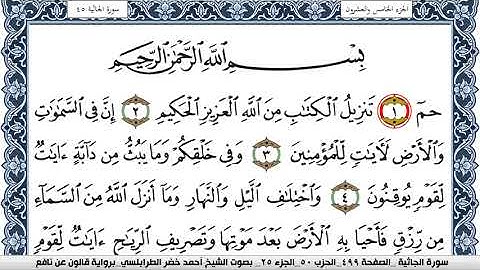 الجزء الخامس والعشرون سورة الجاثية ٤٥
بِسْمِ اللَّهِ الرَّحْمَٰنِ الرَّحِيمِ
حمٓ ١ تَنزِيلُ الْكِتَابِ مِنَ اللَّهِ الْعَزِيزِ الْحَكِيمِ ٢ إِنَّ فِي السَّمَاوَاتِ
وَالْأَرْضِ لَآيَاتٍ لِّلْمُؤْمِنِينَ ٣ وَفِي خَلْقِكُمْ وَمَا يَبُثُّ مِن دَابَّةٍ ءَايَاتٌ
لِّقَوْمٍ يُوقِنُونَ ٤ وَاخْتِلَافِ اللَّيْلِ وَالنَّهَارِ وَمَا أَنزَلَ اللَّهُ مِنَ السَّمَاءِ
مِن رِّزْقٍ فَأَحْيَا بِهِ الْأَرْضَ بَعْدَ مَوْتِهَا وَتَصْرِيفِ الرِّيَاحِ ءَايَاتٌ لِّقَوْمٍ
سورة الجاثية _الصفحة ٤٩٩_الحزب ٥٠_الجزء ٢٥_ بصوت الشيخ أحمد خضر الطرابلسي_برواية قالون عن نافع